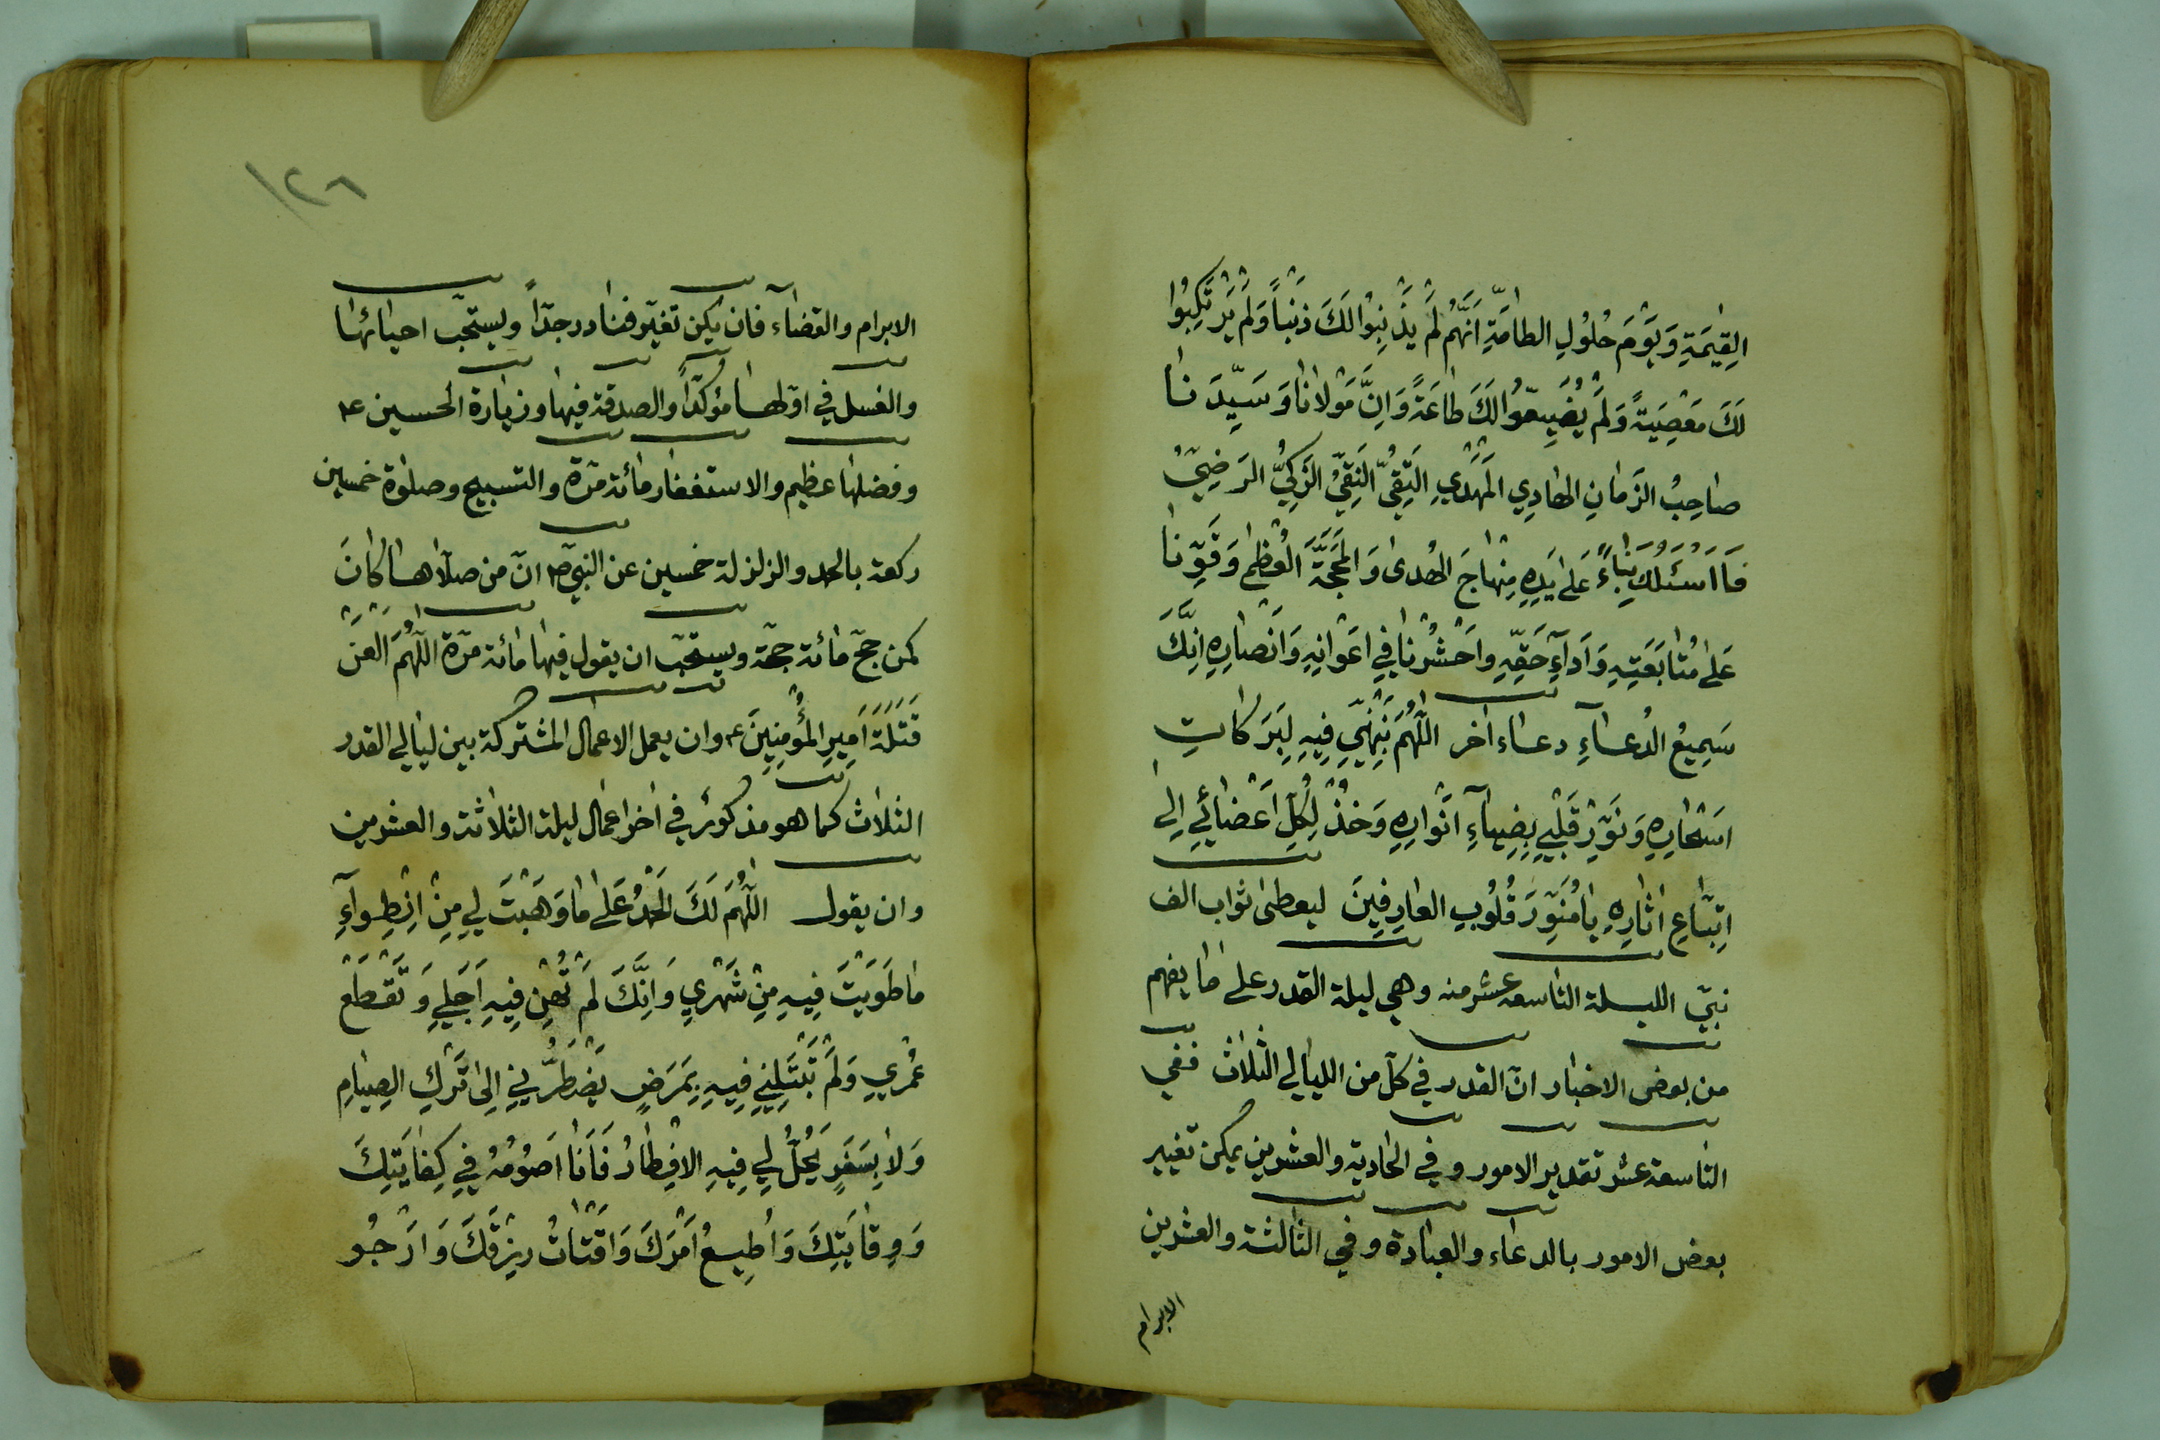 القِيٰمَةِ وَيَوْمَ حُلُولِ الطامَّةِ اَنَّهُمْ لَمْ يُذْنِبُوا لَكَ ذَنْباً وَلَمْ يَرْتَكِبُوا
لَكَ مَعْصِيَةً وَلَمْ يُضَيِّعُوا لَكَ طاعَةً وَاِنَّ مَوْلانٰا وَسَيِّدَنٰا
صٰاحِبُ الزَمٰانِ الهٰادِي المَهْدِيِ التَقِيُّ النَقِيُّ الزَكِيُّ الرَضِيُّ
فَاسْئَلُكَ عَلىٰ يَدِهِ مِنْهٰاجَ الهُدىٰ وَ المَحَجَّةَ العُظمىٰ وَقَوِّنٰا
عَلىٰ مُتٰابَعَتِهِ وَاَدآءِ حَقِّهِ وَاحْشُرْنٰا فِي اَعْوٰانِهِ وَاَنْصٰارِهِ اِنَّكَ
سَمِيعُ الدُعٰآءِ دعاء اخر اللّٰهُمَّ نَبِّهْنِي فِيهِ لِبَرَكٰاتِ
اَسْحٰارِهِ وَنَوِّرْ قَلْبِي بِضِيٰآءِ اَنْوٰارِهِ وَخُذْ لِكُلِّ اَعْضٰائِي اِلىٰ
اِتِّبٰاعِ اٰثٰارِهِ يٰا مُنَوِّرَ قُلُوبِ العٰارِفِينَ ليعطى ثواب الف
نبيّ الليلة التاسعة عشر منه وهي ليلة القدر على ما يفهم
من بعض الاخبار انّ القدر في كلّ من الليالي الثلاث ففي
التاسعة عشر تقدير الامور و في الحادية والعشرين يمكن تغيير
بعض الامور بالدعاء والعبادة و في الثالثة والعشرين
الابرام
١٢٦
الابرام والقضآء فان يكن تغيّر فنادر جدّاً ويستحبّ احيائها
والغسل في اوّلها مؤكّداً والصدقة فيها وزيارة الحسين ع
وفضلها عظيم والاستغفار مائة مرّة والتسبيح وصلوٰة خمسين
ركعة بالحمد والزلزلة خمسين عن النبيّ ص انّ من صلّاها كانَ
كمن حجّ مائة حجّة ويستحبّ ان يقول فيها مائة مرّة اللّٰهُمَّ العَنْ
قَتَلَةَ اَمِيرِ المُؤْمِنِينَ ع وان يعمل الاعمال المشتركة بين ليالي القدر
الثلاث كما هو مذكور في اخر اعمال ليلة الثلاثة والعشرين
وان يقول اللّٰهُمَّ لَكَ الحَمْدُ عَلىٰ مٰا وَهَبْتَ لِي مِنْ اِنْطِوٰآءِ
مٰا طَوَيْتَ فِيهِ مِنْ شَهْرِي وَ اِنَّكَ لَمْ تُحِنْ فِيهِ اَجَلِي وَ تَقْطَعْ
عُمْرِي وَلَمْ تَبْتَلِنِي فِيهِ بِمَرَضٍ يَضْطَرُّنِي اِلىٰ تَرْكِ الصِيٰامِ
وَلاٰ بِسَفَرٍ يَحُلُّ لِي فِيهِ الاِفْطٰارُ فَاَنَا اَصُومُهُ فِي كِفٰايَتِكَ
وَوِقٰايَتِكَ وَاُطِيعُ اَمْرَكَ وَاَقْتٰاتُ رِزْقَكَ وَاَرْجُو